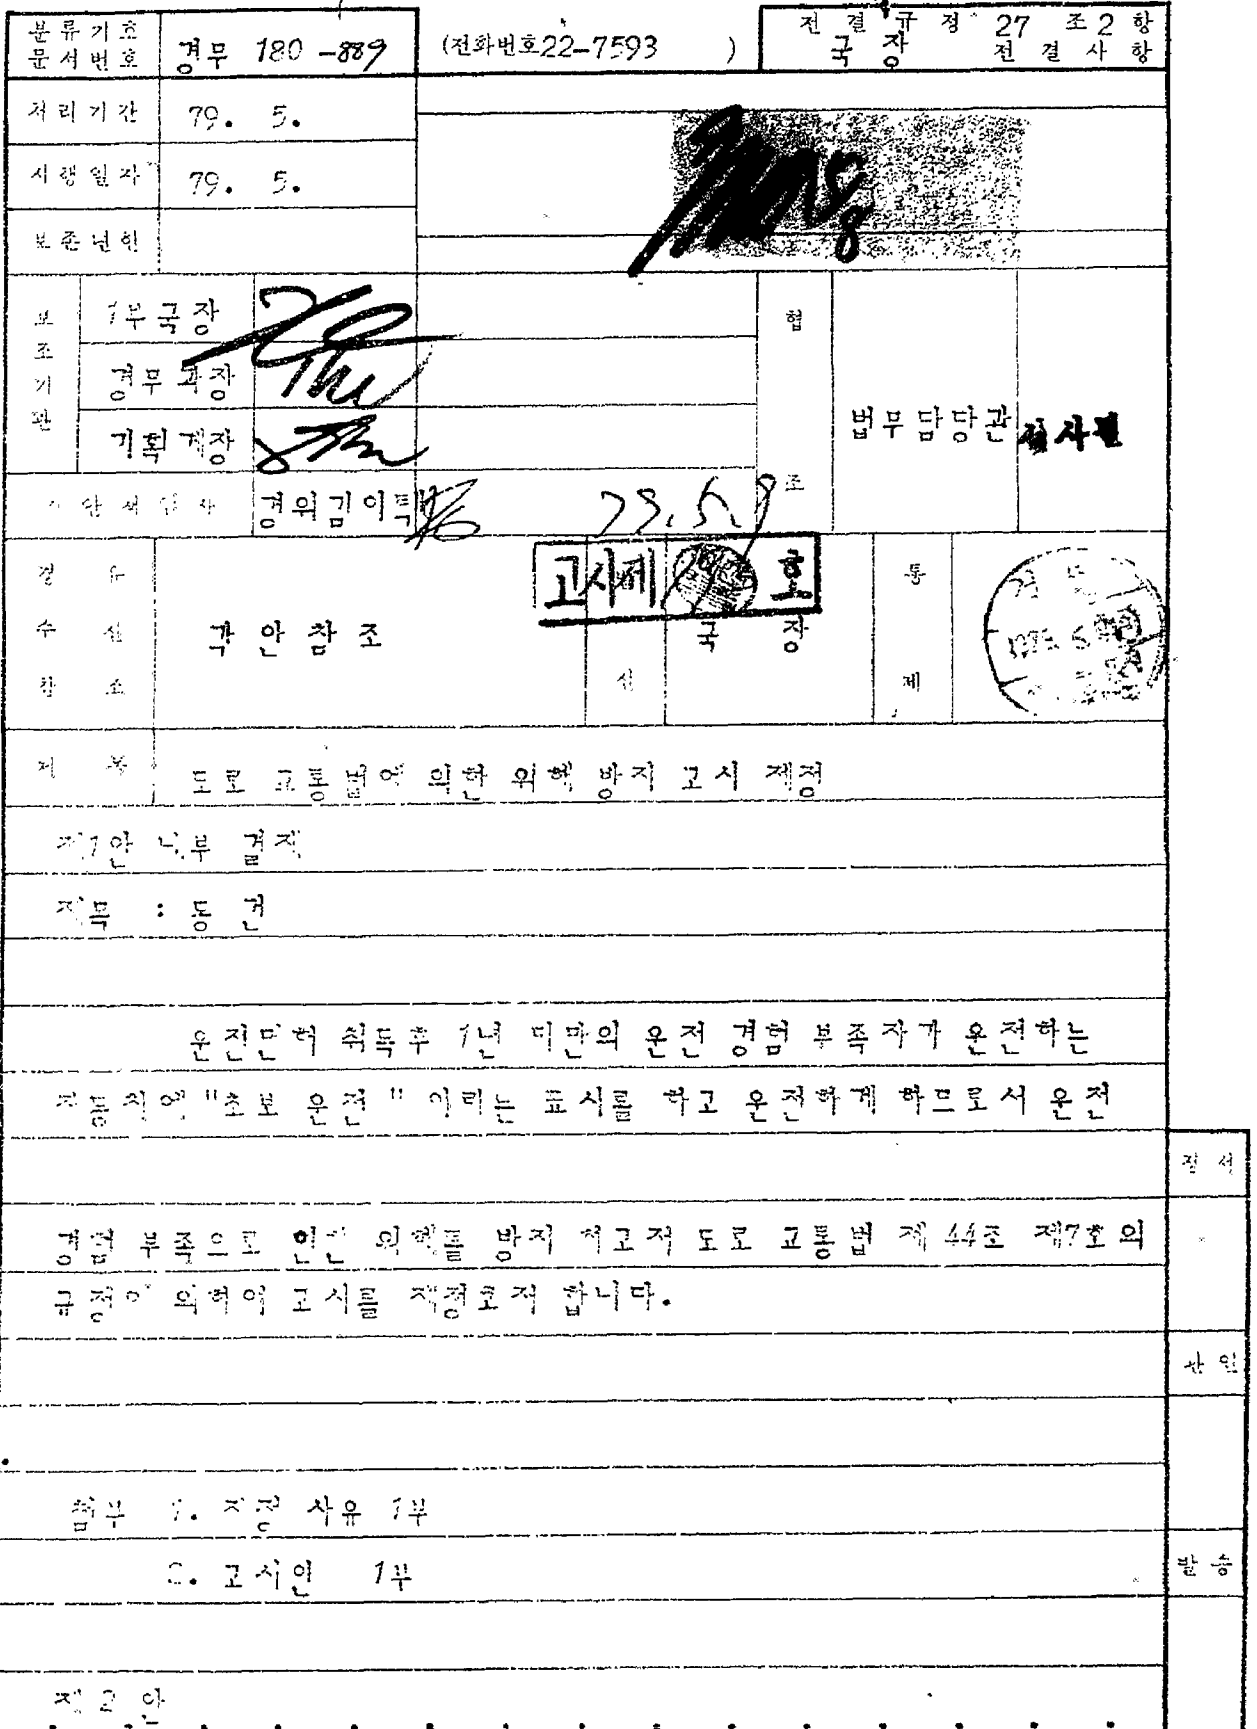 분류기호
문서번호
경무 180-889
(전화번호22-7593 )
전결규정 27 조2항
국장 전결사항
처리기간 79. 5.
시행일자 79. 5.
보존년한
보조기관
1부국장
경무과장
기획계장
경위김이택
협조
법무담당관
심사필
79.5.9
고시제 호
경유
수신
참조
각안참조
신
국장
통제
제목 도로 교통법에 의한 위해 방지 고시 제정
제1안 내부 결재
제목 : 동건
운전면허 취득후 1년 미만의 운전 경험 부족자가 운전하는
자동차에 "초보 운전" 이라는 표시를 하고 운전하게 하므로서 운전
정서
경험 부족으로 인한 위해를 방지 하고저 도로 교통법 제 44조 제7호의
규정에 의하여 고시를 제정코저 합니다.
관인
첨부 1. 제정 사유 1부
2. 고시안 1부
발송
제2안